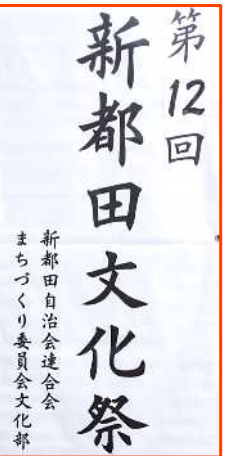 第12回
新都田文化祭
新都田自治会連合会
まちづくり委員会文化部